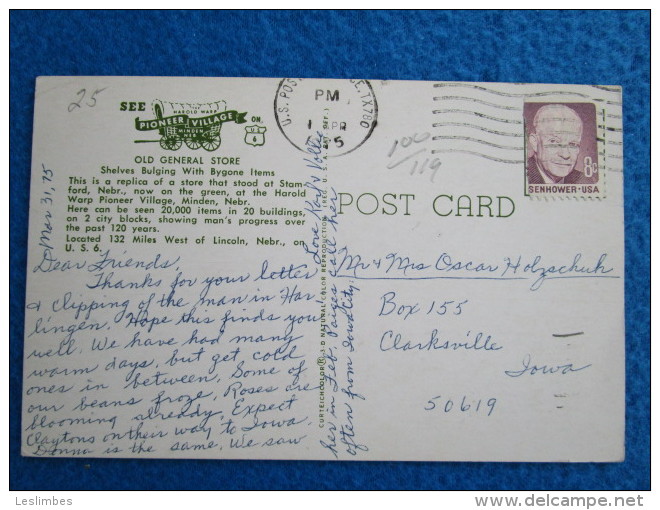 25
SEE
HAROLD WARP
PIONEER VILLAGE
MINDEN
NEB.
ON
U S
6
OLD GENERAL STORE
Shelves Bulging With Bygone Items
This is a replica of a store that stood at Stam-
ford, Nebr., now on the green, at the Harold
Warp Pioneer Village, Minden, Nebr.
Here can be seen 20,000 items in 20 buildings,
on 2 city blocks, showing man's progress over
the past 120 years.
Located 132 Miles West of Lincoln, Nebr., on
U. S. 6.
Mar 31, 75
Dear Friends,
Thanks for your letter
& clipping of the man in Har
lingen. Hope this finds you
well. We have had many
warm days, but get cold
ones in between. Some of
our beans froze. Roses are
blooming already. Expect
Claytons on their way to Iowa.
Donna is the same. We saw
her in Feb.
often from Iowa City.
Love Karl &
CURTEICHCOLOR 3-D NATURAL COLOR REPRODUCTION
U.S. POS
TX 780
PM
1 APR
POST CARD
100/119
EISENHOWER·USA
8¢
Mr & Mrs Oscar Holzschuh
Box 155
Clarksville
Iowa
50619
Leslimbes
delcampe.net